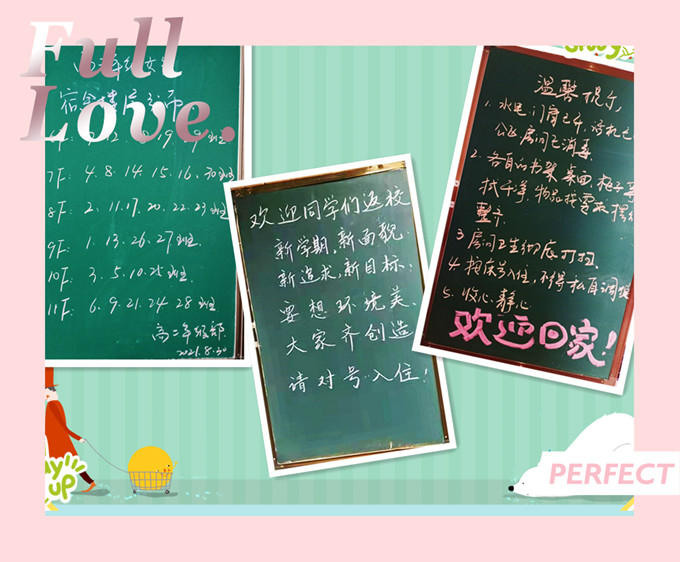 Full
Love.
宿舍楼层分布
7F: 4. 8. 14. 15. 16. 30班
8F: 2. 11. 17. 20. 22. 23班
9F: 1. 13. 26. 27班.
10F: 3. 5. 10. 25班
11F: 6. 9. 21. 24 28班
高二年级部
2021.8.30
欢迎同学们返校
新学期,新面貌.
新追求,新目标.
要想环境美、
大家齐创造
请对号入住!
温馨提示,
1. 水电、门窗已
房间已消毒.
2. 各自的书架、桌面、柜子
拭干净,物品按要求摆
整齐.
3 房间卫生彻底打扫.
4. 按床号入住,不得私自调
5. 收心、静心
欢迎回家!
up
PERFECT